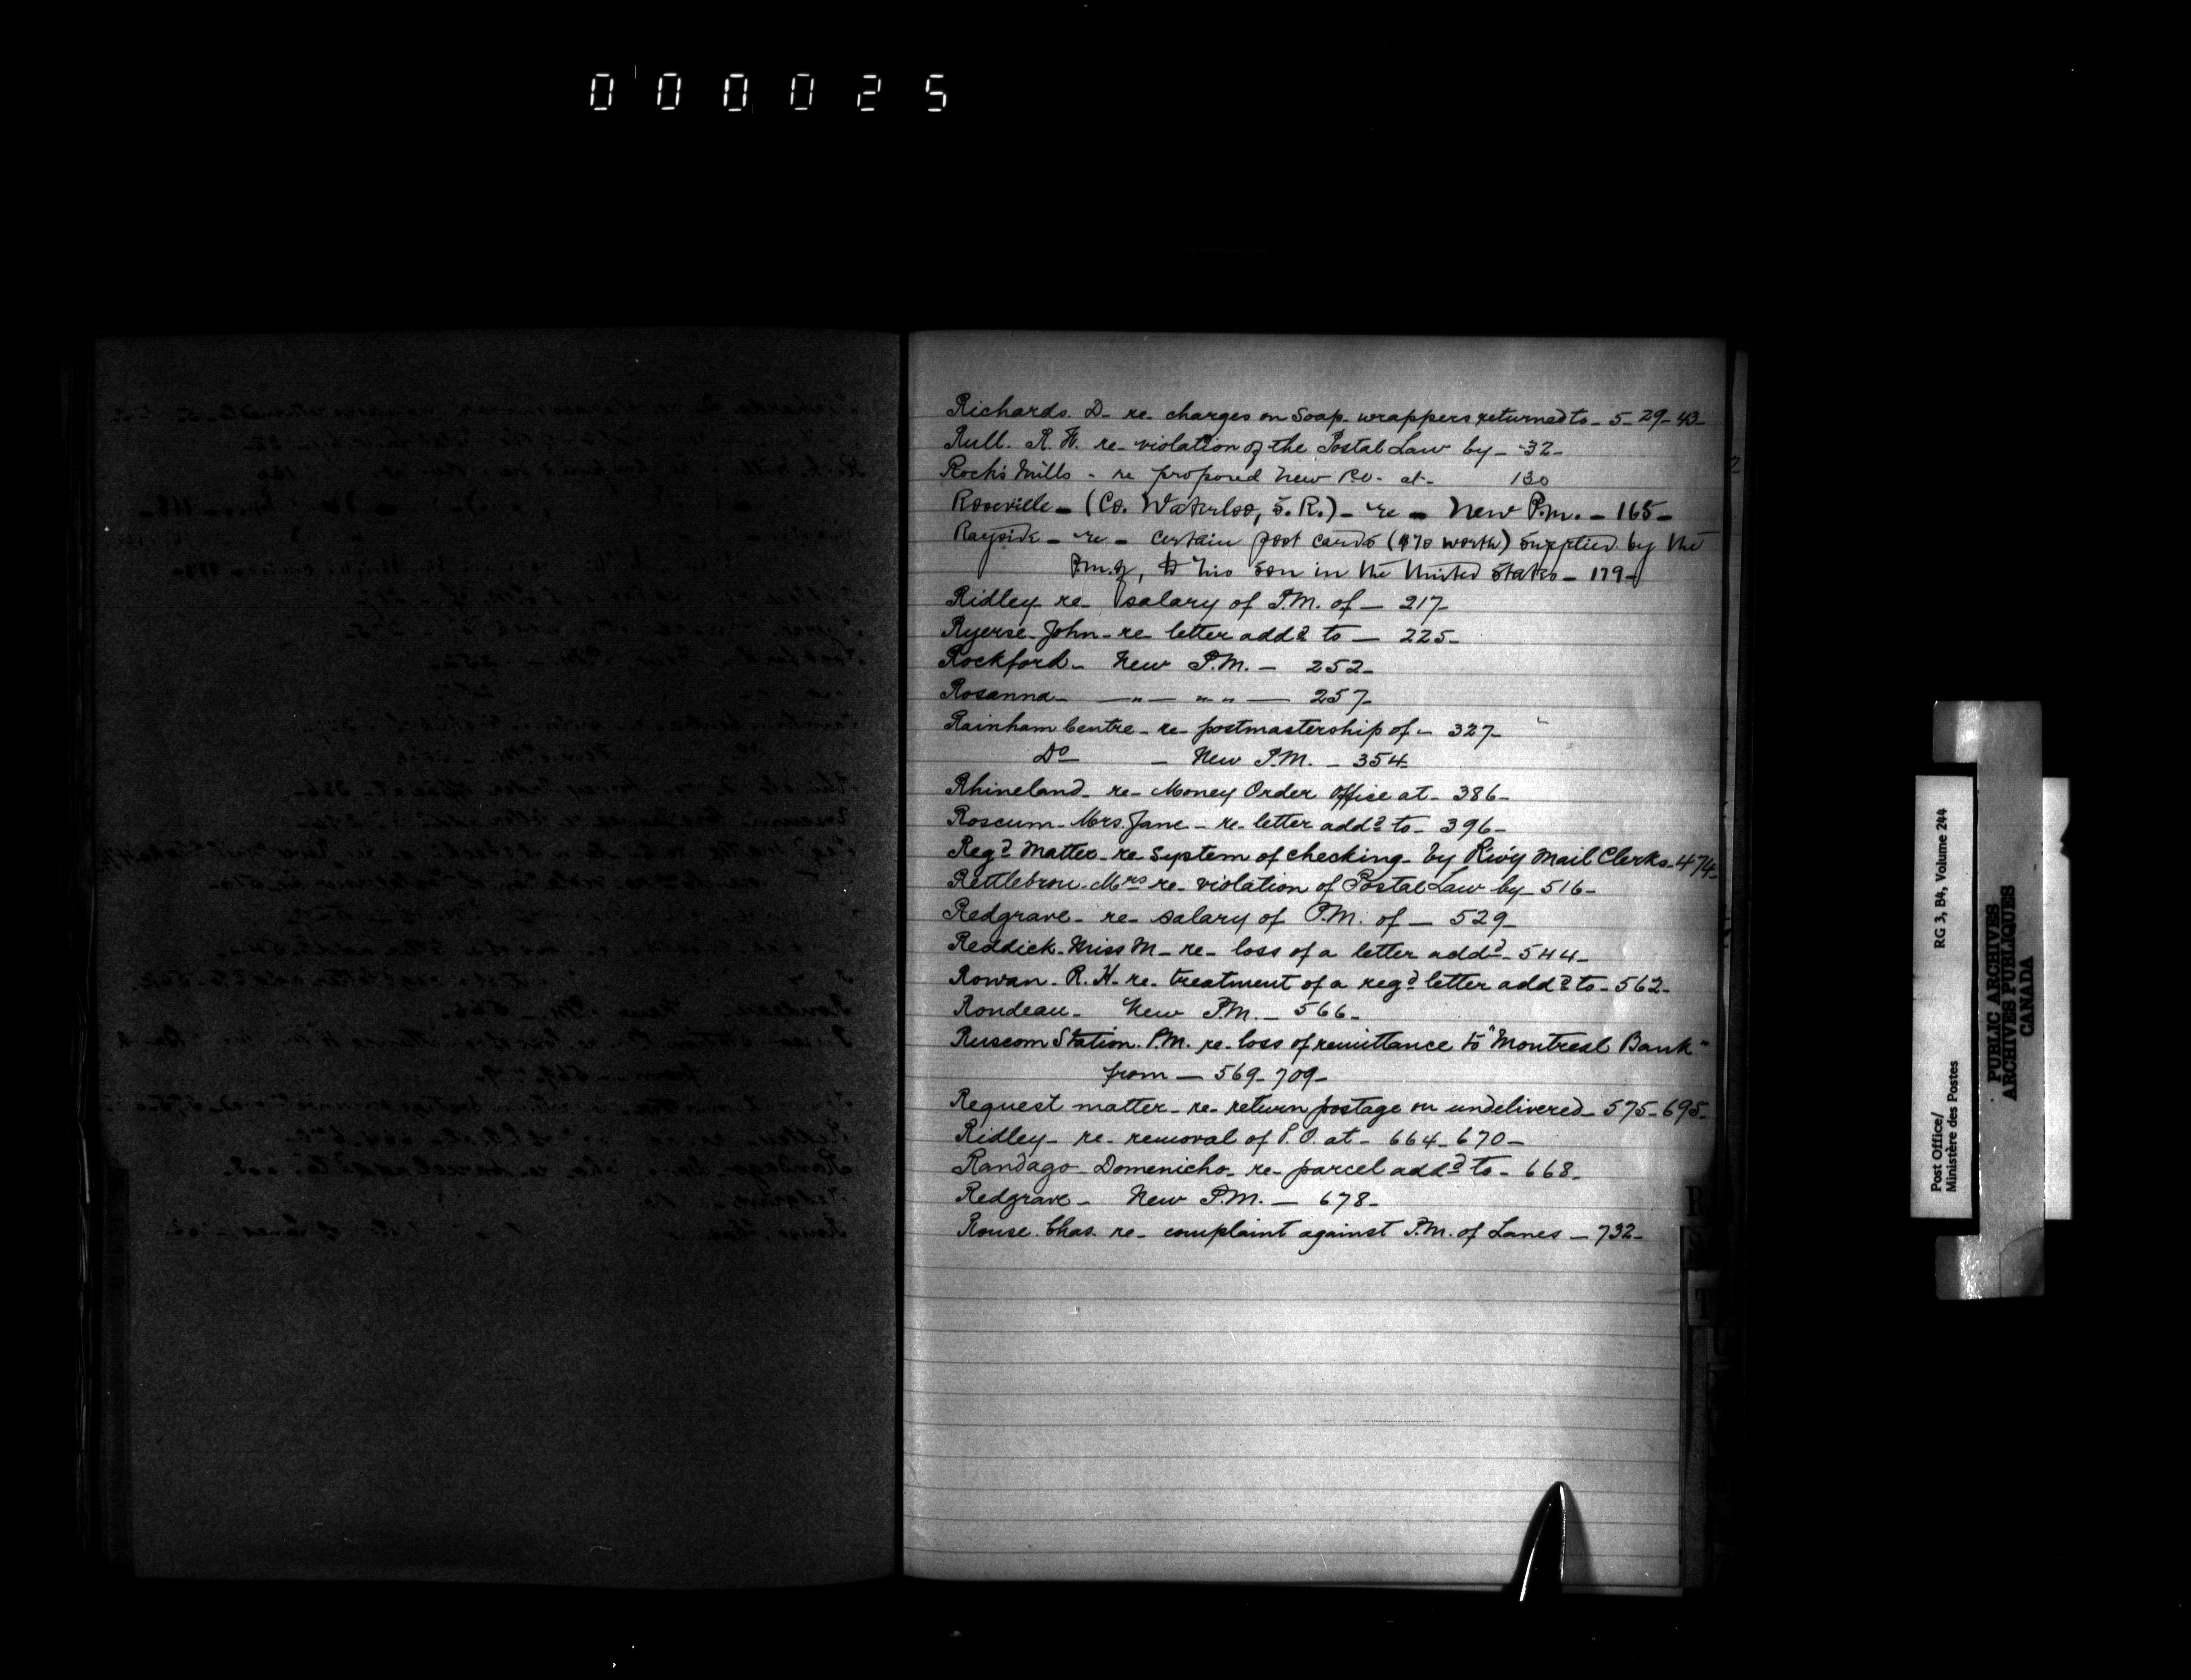 000025
Richards. D- re- charges on Soap wrappers returned to- 5- 29- 43-
Rull. R. W. re- violation of the Postal Law by- 32-
Rock's Mills - re proposed New P.O. at- 130
Roseville- (Co. Waterloo, S. R.)- re- New P.M.- 165-
Rayside- re- Certain post cards ($70 worth) supplied by the
P.M. of, to his son in the United States- 179-
Ridley re- salary of P.M. of- 217-
Ryerse John- re letter addd to- 225-
Rockford- New P.M.- 252-
Rosanna- -"- " "- 257-
Rainham Centre- re- postmastership of- 327-
Do - New P.M.- 354-
Rhineland- re- Money Order Office at- 386-
Roscum- Mrs. Jane- re- letter addd to- 396-
Regd Matter- re System of checking- by R'w'y Mail Clerks- 474-
Rettlebrou- Mrs re- violation of Postal Law by- 516-
Redgrave- re- salary of P.M. of- 529-
Reddick- Miss M- re- loss of a letter addd- 544-
Rowan- R. H- re- treatment of a regd letter addd to- 562-
Rondeau- New P.M.- 566-
Ruscom Station. P.M. re- loss of remittance to "Montreal Bank"
from- 569- 709-
Request matter- re- return postage on undelivered- 575- 695-
Ridley- re- removal of P.O. at- 664- 670-
Randago Domenicho- re- parcel addd to- 668-
Redgrave- New P.M.- 678-
Rouse. Chas. re- complaint against P.M. of Lanes- 732-
R
S
T
U
Post Office/
Ministère des Postes
RG 3, B4, Volume 244
PUBLIC ARCHIVES
ARCHIVES PUBLIQUES
CANADA